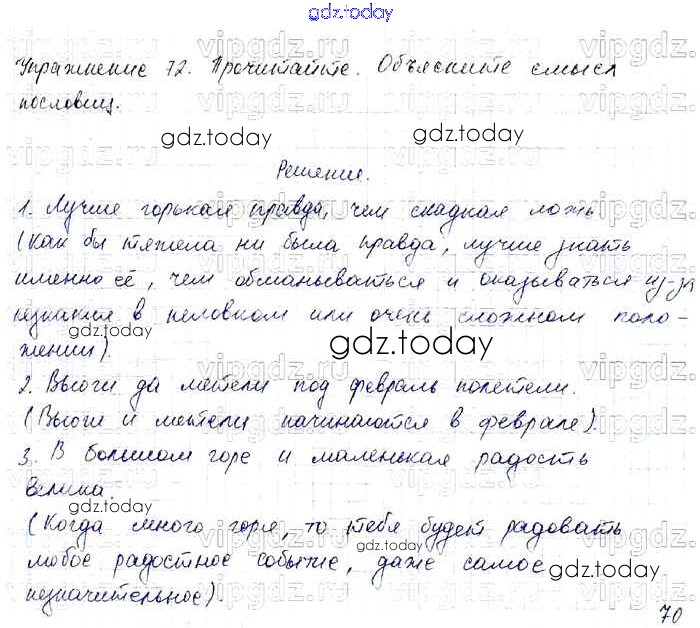 gdz.today
Упражнение 72. Прочитайте. Объясните смысл
пословиц.
gdz.today
gdz.today
Решение.
1. Лучше горькая правда, чем сладкая ложь
(Как бы тяжела ни была правда, лучше знать
именно её, чем обманываться и оказываться из-за
незнания в неловком или очень сложном поло-
gdz.today
жении).
gdz.today
2. Вьюги да метели под февраль полетели.
(Вьюги и метели начинаются в феврале).
3. В большом горе и маленькая радость
велика.
gdz.today
(Когда много горя, то тебя будет радовать
gdz.today
любое радостное событие, даже самое
gdz.today
незначительное).
70